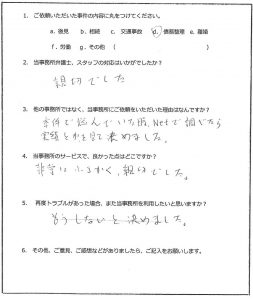 1. ご依頼いただいた事件の内容に丸をつけてください。
a. 後見 b. 相続 c. 交通事故 d. 債務整理 e. 離婚
f. 労働 g. その他 ( )
2. 当事務所弁護士、スタッフの対応はいかがでしたか？
親切でした
3. 他の事務所ではなく、当事務所にご依頼をいただいた理由はなんですか？
で悩んでいた時、Netで調べたら
実績とかを見て決めました。
4. 当事務所のサービスで、良かった点はどこですか？
非常に 親切でした。
5. 再度トラブルがあった場合、また当事務所を利用したいと思いますか？
もうしないと決めました。
6. その他、ご意見、ご感想などがありましたら、ご記入をお願いします。